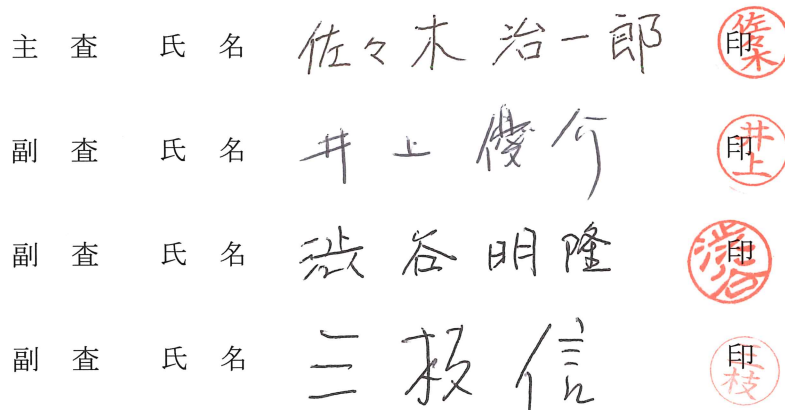 主査 氏名 佐々木 治一郎 印 佐々木
副査 氏名 井上 優介 印 井上
副査 氏名 渋谷 明隆 印 渋谷
副査 氏名 三枝 信 印 三枝